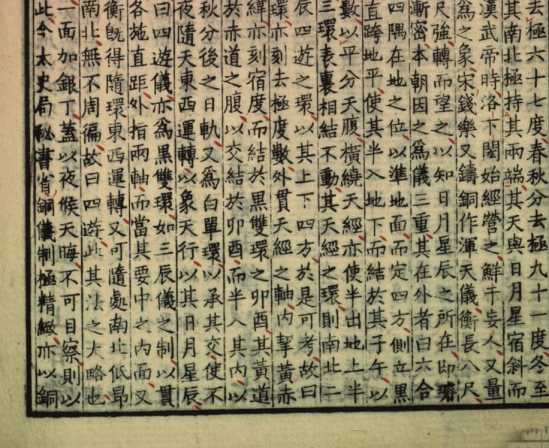 去極六十七度春秋分去極九十一度冬至
其南北極持其兩端其天與日月星宿斜而
漢武帝時洛下閎始經營之鮮于妄人又量
為之象宋錢樂又鑄銅作渾天儀衡長八尺
尺強轉而望之以知日月星辰之所在即璿
漸密本朝因之為儀三重其在外者曰六合
四隅在地之位以準地面而定四方側立黑
直跨地平使其半入地下而結於其子午以
數以平分天腹橫繞天經亦使半出地上半
三環表裏相結不動其天經之環則南北二
辰四遊之環以其上下四方於是可考故曰
環亦刻去極度數外貫天經之軸內挈黃赤
緯亦刻宿度而結於黑雙環之卯酉其黃道
於赤道之腹以交結於卯酉而半入其內以
秋分後之日軌又為白單環以承其交使不
夜隨天東西運轉以象天行以其日月星辰
曰四遊儀亦為黑雙環如三辰儀之制以貫
各地直距外指兩軸而當其要中之內面又
衡既得隨環東西運轉又可隨處南北低昂
南北無不周徧故曰四遊此其法之大略也
一面加銀丁蓋以夜候天晦不可目察則以
此今太史局秘書省銅儀制極精緻亦以銅